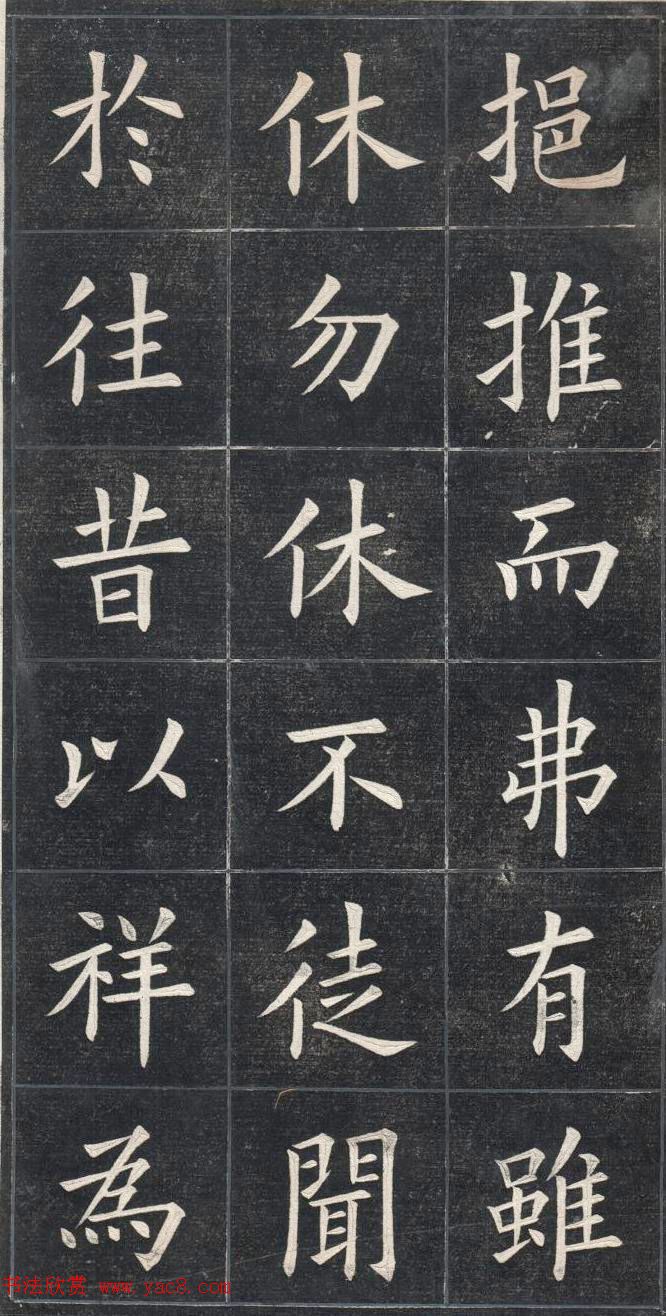 挹推而弗有雖
休勿休不徒聞
於往昔以祥為
书法欣赏 www.yac8.com